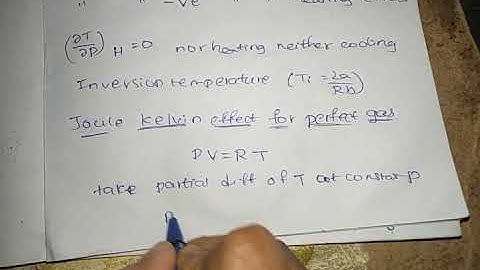 " -ve " "
(∂T/∂P)H = 0 nor heating neither cooling
Inversion temperature (Ti = 2a/Rb)
Joule Kelvin effect for perfect gas
PV = RT
take partial diff of T at constant p